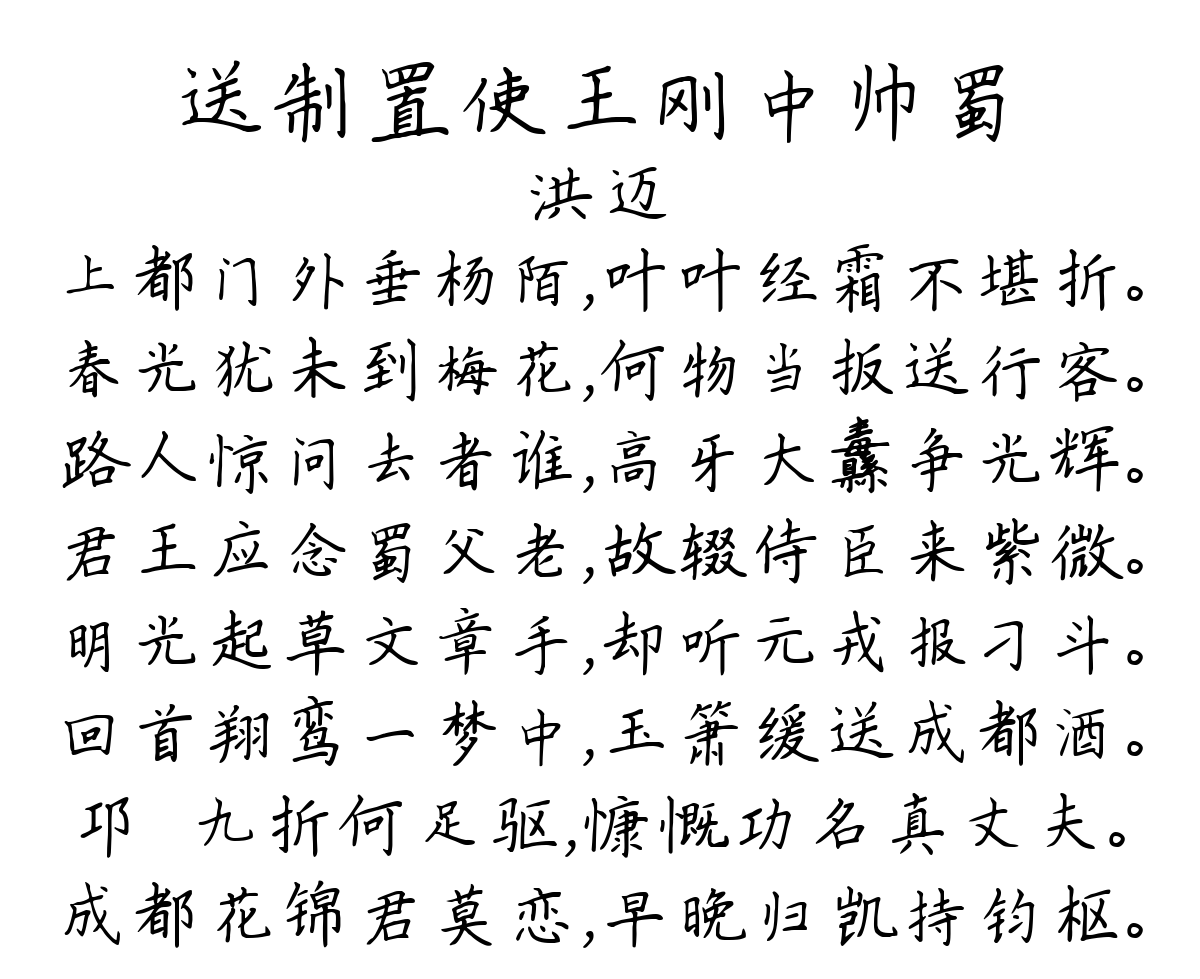 送制置使王刚中帅蜀
洪迈
上都门外垂杨陌,叶叶经霜不堪折。
春光犹未到梅花,何物当扳送行客。
路人惊问去者谁,高牙大纛争光辉。
君王应念蜀父老,故辍侍臣来紫微。
明光起草文章手,却听元戎报刁斗。
回首翔鸾一梦中,玉箫缓送成都酒。
邛 九折何足驱,慷慨功名真丈夫。
成都花锦君莫恋,早晚归凯持钧枢。